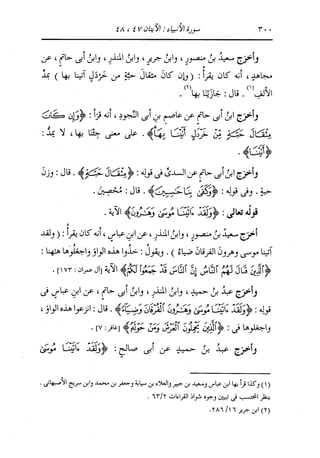 ٣٠٠ سورة الأنبياء : الآيتان ٤٧ ، ٤٨
وأخرَج سعيدُ بنُ منصورٍ ، وابنُ جريرٍ ، وابنُ المنذرِ ، وابنُ أبى حاتمٍ ، عن
مجاهدٍ ، أنه كان يقرأُ : ( وإن كانَ مثقالَ حبَّةٍ من خَرْدَلٍ آتينا بها ) بمدِّ
الألفِ(١) . قال : جازَيْنا بها(٢) .
وأخرَج ابنُ أبى حاتمٍ عن عاصمِ بنِ أبى النَّجودِ ، أنه قرَأ : ﴿وَإِن كَانَ
مِثْقَالَ حَبَّةٍ مِّنْ خَرْدَلٍ أَتَيْنَا بِهَا﴾ . على معنى جِئْنا بها ، لا يمدُّ :
﴿أَتَيْنَا﴾ .
وأخرَج ابنُ أبى حاتمٍ عن السدىِّ فى قولِه : ﴿مِثْقَالَ حَبَّةٍ﴾ . قال : وزنَ
حبةٍ . وفى قولِه : ﴿وَكَفَىٰ بِنَا حَاسِبِينَ﴾ . قال : مُحْصِين .
قولُه تعالى : ﴿وَلَقَدْ ءَاتَيْنَا مُوسَىٰ وَهَارُونَ﴾ الآية .
أخرَج سعيدُ بنُ منصورٍ ، وابنُ المنذرِ ، عن ابنِ عباسٍ ، أنه كان يقرأُ : ( ولقد
آتينا موسى وهرونَ الفرقانَ ضياءً ) . ويقولُ : خذُوا هذه الواوَ واجعَلوها ههُنا :
﴿الَّذِينَ قَالَ لَهُمُ النَّاسُ إِنَّ النَّاسَ قَدْ جَمَعُوا لَكُمْ﴾ الآية [آل عمران : ١٧٣] .
وأخرَج عبدُ بنُ حميدٍ ، وابنُ المنذرِ ، وابنُ أبى حاتمٍ ، عن ابنِ عباسٍ فى
قولِه : ﴿وَلَقَدْ ءَاتَيْنَا مُوسَىٰ وَهَارُونَ الْفُرْقَانَ وَضِيَاءً﴾ . قال : انزِعوا هذه الواوَ ،
واجعَلوها فى : ﴿الَّذِينَ يَحْمِلُونَ الْعَرْشَ وَمَنْ حَوْلَهُ﴾ [غافر : ٧] .
وأخرَج عبدُ بنُ حميدٍ عن أبى صالحٍ : ﴿وَلَقَدْ ءَاتَيْنَا مُوسَىٰ
(١) وكذا قرأ بها ابن عباس وسعيد بن جبير والعلاء بن سيابة وجعفر بن محمد وابن سريج الأصبهانى .
ينظر المحتسب فى تبيين وجوه شواذ القراءات ٦٣/٢ .
(٢) ابن جرير ٢٨٦/١٦ .